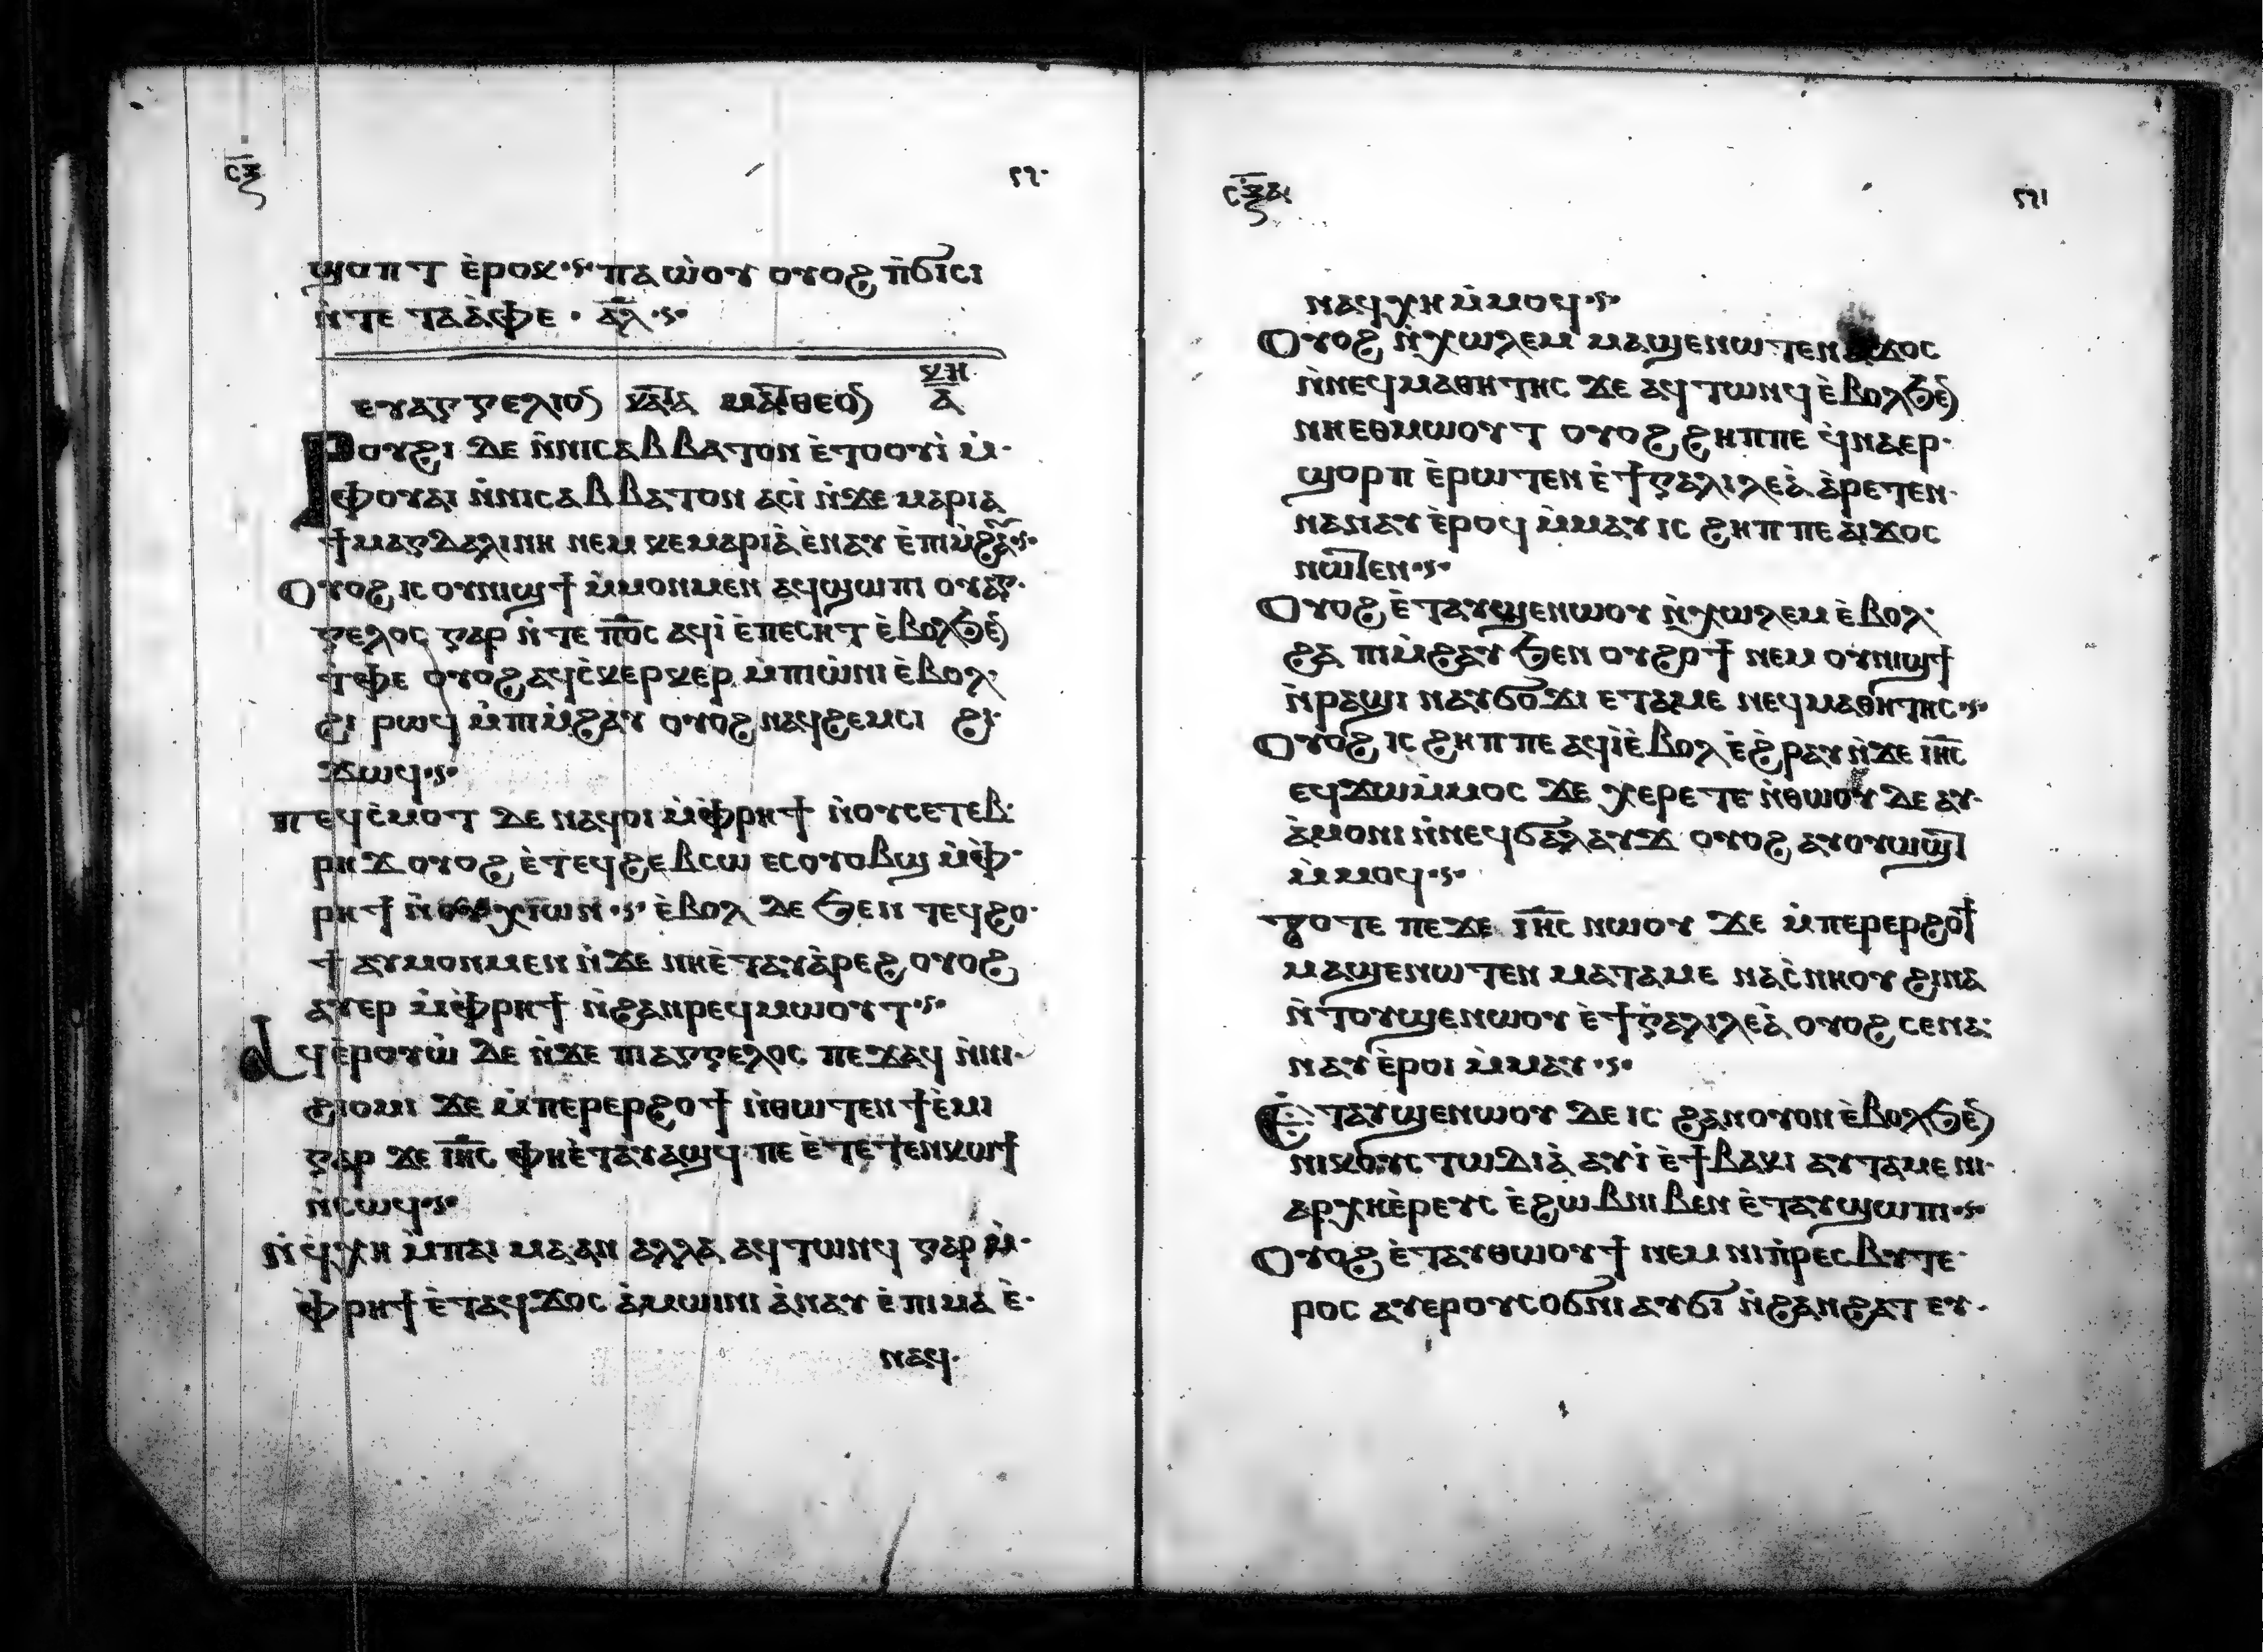 ⲥⲝ ٥٢٠
ϣⲟⲡⲧ ⲉ̀ⲣⲟⲕ ⲡⲁⲱ̀ⲟⲩ ⲟⲩⲟϩ ⲡ̀ϭⲓⲥⲓ
ⲛ̀ⲧⲉ ⲧⲁⲁ̀ⲫⲉ · ⲁ̅ⲗ̅
ⲕⲏ
ⲉⲩⲁⲅⲅⲉⲗⲓⲟⲛ ⲕⲁⲧⲁ ⲙⲁⲧⲑⲉⲟⲛ ⲁ̅
Ⲣⲟⲩϩⲓ ⲇⲉ ⲛ̀ⲛⲓⲥⲁⲃⲃⲁⲧⲟⲛ ⲉ̀ⲧⲟⲟⲩⲓ̀ ⲙ̀·
ⲫⲟⲩⲁⲓ ⲛ̀ⲛⲓⲥⲁⲃⲃⲁⲧⲟⲛ ⲁⲥⲓ̀ ⲛ̀ϫⲉ ⲙⲁⲣⲓⲁ
ϯⲙⲁⲅⲇⲁⲗⲓⲛⲏ ⲛⲉⲙ ⲕⲉⲙⲁⲣⲓⲁ̀ ⲉ̀ⲛⲁⲩ ⲉ̀ⲡⲓⲙ̀ϩⲁⲩ
Ⲟⲩⲟϩ ⲓⲥ ⲟⲩⲛⲓϣϯ ⲙ̀ⲙⲟⲛⲙⲉⲛ ⲁϥϣⲱⲡⲓ ⲟⲩⲁⲅ·
ⲅⲉⲗⲟⲥ ⲅⲁⲣ ⲛ̀ⲧⲉ ⲡⲟ̅ⲥ ⲁϥⲓ̀ ⲉ̀ⲡⲉⲥⲏⲧ ⲉ̀ⲃⲟⲗϧⲉⲛ
ⲧ̀ⲫⲉ ⲟⲩⲟϩ ⲁϥⲥ̀ⲕⲉⲣⲕⲉⲣ ⲙ̀ⲡⲓⲱ̀ⲛⲓ ⲉ̀ⲃⲟⲗ
ϩⲓ ⲣⲱϥ ⲙ̀ⲡⲓⲙ̀ϩⲁⲩ ⲟⲩⲟϩ ⲛⲁϥϩⲉⲙⲥⲓ ϩⲓ·
ϫⲱϥ
ⲡⲉϥⲥ̀ⲙⲟⲧ ⲇⲉ ⲛⲁϥⲟⲓ ⲙ̀ⲫⲣⲏϯ ⲛ̀ⲟⲩⲥⲉⲧⲉⲃ·
ⲣⲏϫ ⲟⲩⲟϩ ⲉ̀ⲧⲉϥϩⲉⲃⲥⲱ ⲉⲥⲟⲩⲟⲃϣ ⲙ̀ⲫ·
ⲣⲏϯ ⲛ̀ⲟⲩⲭⲓⲱⲛ ⲉ̀ⲃⲟⲗ ⲇⲉ ϧⲉⲛ ⲧⲉϥϩⲟ·
ϯ ⲁⲩⲙⲟⲛⲙⲉⲛ ⲛ̀ϫⲉ ⲛⲏⲉ̀ⲧⲁⲩⲁ̀ⲣⲉϩ ⲟⲩⲟϩ
ⲁⲩⲉⲣ ⲙ̀ⲫⲣⲏϯ ⲛ̀ϩⲁⲛⲣⲉϥⲙⲱⲟⲩⲧ
Ⲁϥⲉ̀ⲣⲟⲩⲱ̀ ⲇⲉ ⲛ̀ϫⲉ ⲡⲓⲁⲅⲅⲉⲗⲟⲥ ⲡⲉϫⲁϥ ⲛ̀ⲛⲓ·
ϩⲓⲟⲙⲓ ϫⲉ ⲙ̀ⲡⲉⲣⲉⲣϩⲟϯ ⲛ̀ⲑⲱⲧⲉⲛ ϯⲉ̀ⲙⲓ
ⲅⲁⲣ ϫⲉ ⲓⲏ̅ⲥ ⲫⲏⲉ̀ⲧⲁⲩⲁϣϥ ⲡⲉ ⲉ̀ⲧⲉⲧⲉⲛⲕⲱϯ
ⲛ̀ⲥⲱϥ
ⲛ̀ϥⲭⲏ ⲙ̀ⲡⲁⲓ ⲙⲁ ⲁⲛ ⲁⲗⲗⲁ ⲁϥⲧⲱⲛϥ ⲅⲁⲣ ⲙ̀·
ⲫ̀ⲣⲏϯ ⲉ̀ⲧⲁϥϫⲟⲥ ⲁ̀ⲙⲱⲓⲛⲓ ⲁ̀ⲛⲁⲩ ⲉ̀ⲡⲓⲙⲁ ⲉ̀·
ⲛⲁϥ·
ⲥⲝⲁ ٥٢١
ⲛⲁϥⲭⲏ ⲙ̀ⲙⲟϥ
Ⲟⲩⲟϩ ⲛ̀ⲭⲱⲗⲉⲙ ⲙⲁϣⲉⲛⲱⲧⲉⲛ ⲁϫⲟⲥ
ⲛ̀ⲛⲉϥⲙⲁⲑⲏⲧⲏⲥ ϫⲉ ⲁϥⲧⲱⲛϥ ⲉ̀ⲃⲟⲗϧⲉⲛ
ⲛⲏⲉⲑⲙⲱⲟⲩⲧ ⲟⲩⲟϩ ϩⲏⲡⲡⲉ ϥ̀ⲛⲁⲉⲣ·
ϣⲟⲣⲡ ⲉ̀ⲣⲱⲧⲉⲛ ⲉ̀ϯⲅⲁⲗⲓⲗⲉⲁ̀ ⲁ̀ⲣⲉⲧⲉⲛ·
ⲛⲁⲛⲁⲩ ⲉ̀ⲣⲟϥ ⲙ̀ⲙⲁⲩ ⲓⲥ ϩⲏⲡⲡⲉ ⲁⲓϫⲟⲥ
ⲛⲱⲧⲉⲛ
Ⲟⲩⲟϩ ⲉ̀ⲧⲁⲩϣⲉⲛⲱⲟⲩ ⲛ̀ⲭⲱⲗⲉⲙ ⲉ̀ⲃⲟⲗ·
ϩⲁ ⲡⲓⲙ̀ϩⲁⲩ ϧⲉⲛ ⲟⲩϩⲟϯ ⲛⲉⲙ ⲟⲩⲛⲓϣϯ
ⲛ̀ⲣⲁϣⲓ ⲛⲁⲩϭⲟϫⲓ ⲉⲧⲁⲙⲉ ⲛⲉϥⲙⲁⲑⲏⲧⲏⲥ
Ⲟⲩⲟϩ ⲓⲥ ϩⲏⲡⲡⲉ ⲁϥⲓ̀ⲉ̀ⲃⲟⲗ ⲉ̀ϩ̀ⲣⲁⲩ ⲛ̀ϫⲉ ⲓⲏ̅ⲥ
ⲉϥϫⲱⲙ̀ⲙⲟⲥ ϫⲉ ⲭⲉⲣⲉⲧⲉ ⲛ̀ⲑⲱⲟⲩ ⲇⲉ ⲁⲩ·
ⲁ̀ⲙⲟⲛⲓ ⲛ̀ⲛⲉϥϭⲁⲗⲁⲩϫ ⲟⲩⲟϩ ⲁⲩⲟⲩⲱϣⲧ
ⲙ̀ⲙⲟϥ
Ⲧⲟⲧⲉ ⲡⲉϫⲉ ⲓⲏ̅ⲥ ⲛⲱⲟⲩ ϫⲉ ⲙ̀ⲡⲉⲣⲉⲣϩⲟϯ
ⲙⲁϣⲉⲛⲱⲧⲉⲛ ⲙⲁⲧⲁⲙⲉ ⲛⲁⲥ̀ⲛⲏⲟⲩ ϩⲓⲛⲁ
ⲛ̀ⲧⲟⲩϣⲉⲛⲱⲟⲩ ⲉ̀ϯⲅⲁⲗⲓⲗⲉⲁ̀ ⲟⲩⲟϩ ⲥⲉⲛⲁ·
ⲛⲁⲩ ⲉ̀ⲣⲟⲓ ⲙ̀ⲙⲁⲩ
Ⲉⲧⲁⲩϣⲉⲛⲱⲟⲩ ⲇⲉ ⲓⲥ ϩⲁⲛⲟⲩⲟⲛ ⲉ̀ⲃⲟⲗϧⲉⲛ
ⲛⲓⲕⲟⲩⲥⲧⲱⲇⲓⲁ̀ ⲁⲩⲓ̀ ⲉ̀ϯⲃⲁⲕⲓ ⲁⲩⲧⲁⲙⲉ ⲛⲓ·
ⲁⲣⲭⲏⲉ̀ⲣⲉⲩⲥ ⲉ̀ϩⲱⲃ ⲛⲓⲃⲉⲛ ⲉ̀ⲧⲁⲩϣⲱⲡⲓ
Ⲟⲩⲟϩ ⲉ̀ⲧⲁⲩⲑⲱⲟⲩϯ ⲛⲉⲙ ⲛⲓⲡ̀ⲣⲉⲥⲃⲩⲧⲉ·
ⲣⲟⲥ ⲁⲩⲉⲣⲟⲩⲥⲟϭⲛⲓ ⲁⲩϭⲓ ⲛ̀ϩⲁⲛϩⲁⲧ ⲉⲩ·